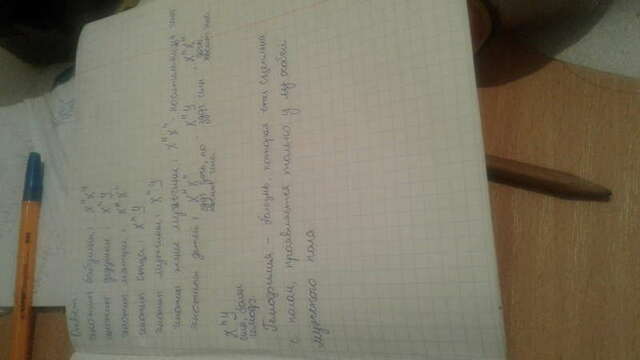 Ответ
генотип бабушки: XᴴXʰ
генотип дедушки: XᴴY
генотип матери: XᴴXʰ
генотип отца: XᴴY
генотип мужчины: XᴴY
генотип жены мужчины: XᴴXʰ - носительница гена
генотипы детей: XᴴXʰ XᴴY XᴴXᴴ
здор дочь, но здор сын дочь,
носит гена носит ген
XʰY
сын, болен
гемоф.
Гемофилия - болезнь, которая сцеплена
с полом, проявляется только у особей
мужского пола